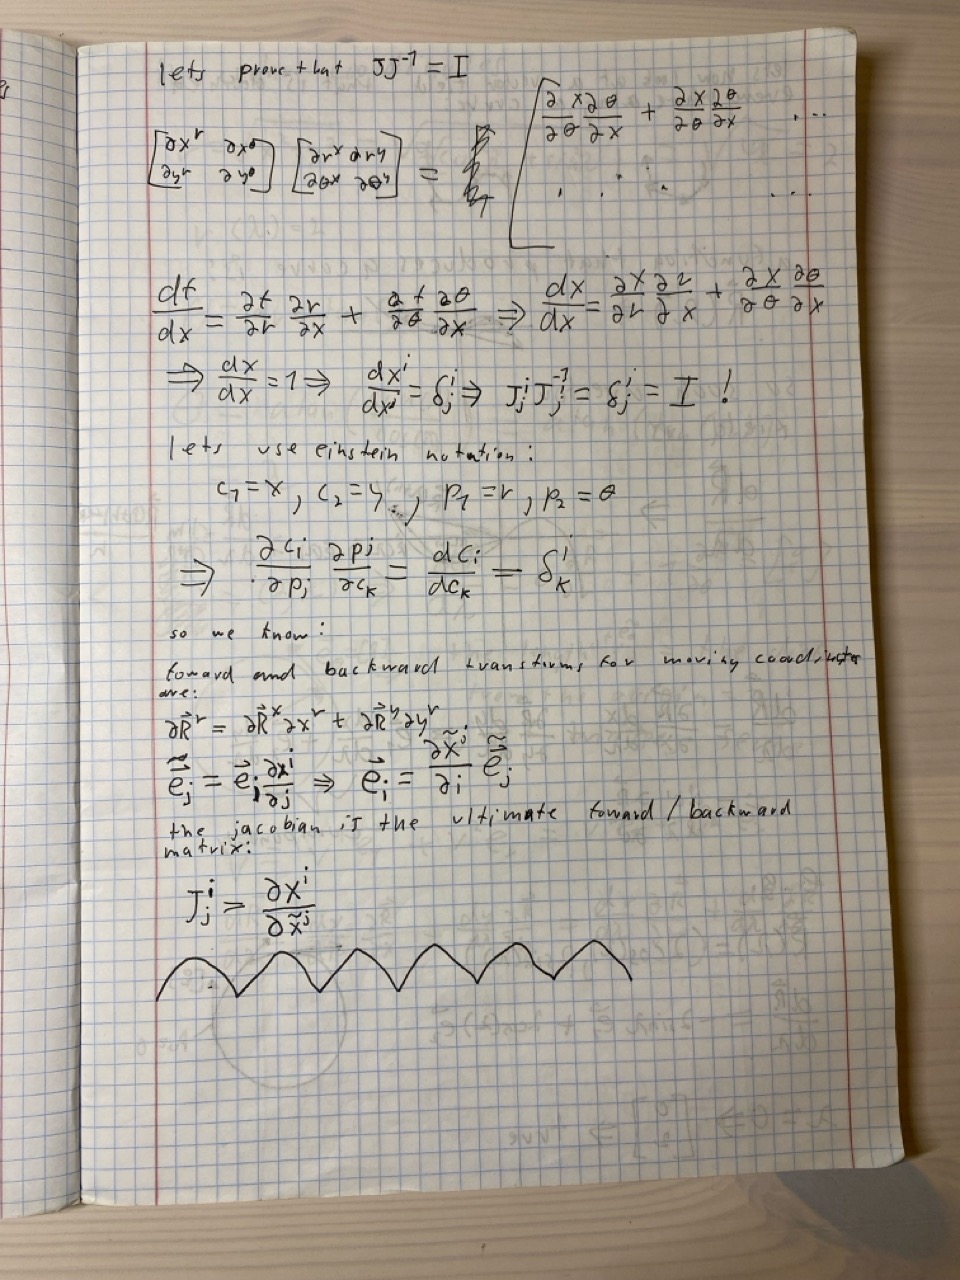 lets prove that JJ⁻¹ = I
[∂x^r ∂x^θ; ∂y^r ∂y^θ] [∂r^x ∂r^y; ∂θ^x ∂θ^y] = [∂x/∂θ ∂θ/∂x + ∂x/∂θ ∂θ/∂x ...
. . . . ...
df/dx = ∂f/∂r ∂r/∂x + ∂f/∂θ ∂θ/∂x ⇒ dx/dx = ∂x/∂r ∂r/∂x + ∂x/∂θ ∂θ/∂x
⇒ dx/dx = 1 ⇒ dx^i/dx^j = δ^i_j ⇒ J^i_j J^-1_j = δ^i_j = I !
lets use einstein notation:
c₁ = x, c₂ = y, ..., p₁ = r, p₂ = θ
⇒ ∂c_i/∂p_j ∂p_j/∂c_k = dc_i/dc_k = δ^i_k
so we know:
foward and backward transforms for moving coordinates
are:
∂R⃗^r = ∂R⃗^x ∂x^r + ∂R⃗^y ∂y^r
ẽ⃗_j = e⃗_i ∂x^i/∂j ⇒ e⃗_i = ∂x̃^j/∂i ẽ⃗_j
the jacobian is the ultimate foward/backward
matrix:
J^i_j = ∂x^i/∂x̃^j